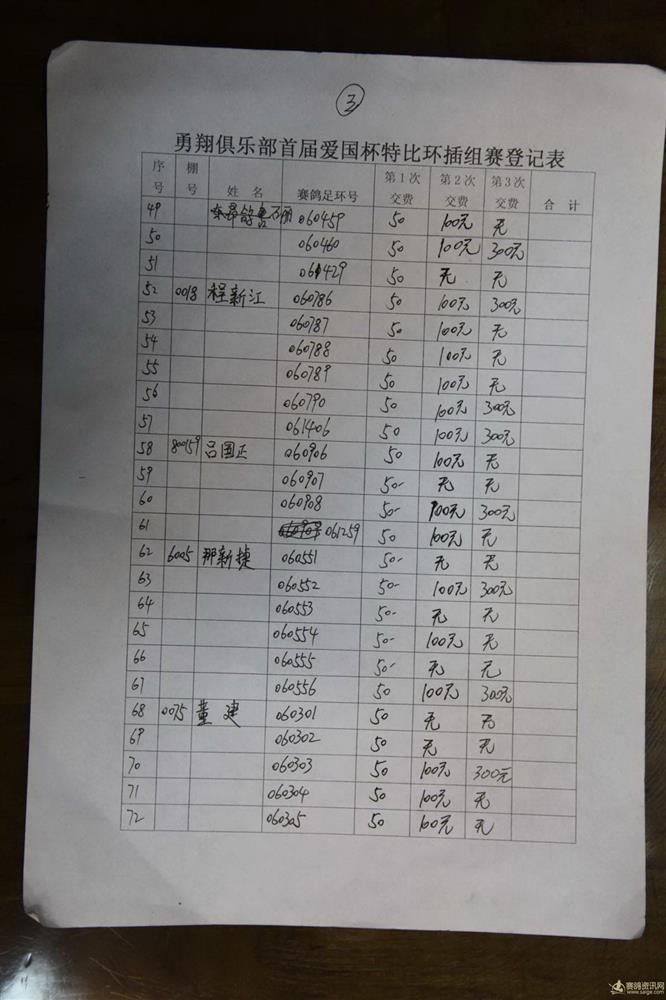 ③
勇翔俱乐部首届爱国杯特比环插组赛登记表
序号 棚号 姓 名 赛鸽足环号 第1次交费 第2次交费 第3次交费 合 计
49 060459 50 100元 无
50 060460 50 100元 300元
51 061429 50 无 无
52 0018 程新江 060786 50 100元 300元
53 060787 50 100元 无
54 060788 50 100元 无
55 060789 50 100元 无
56 060790 50 100元 300元
57 061406 50 100元 300元
58 800159 吕国正 060906 50 100元 无
59 060907 50- 无 无
60 060908 50- 100元 300元
61 061259 50 100元 无
62 6005 那新捷 060551 50- 无 无
63 060552 50- 100元 300元
64 060553 50- 无 无
65 060554 50- 100元 无
66 060555 50- 无 无
67 060556 50 100元 300元
68 0075 董建 060301 50 无 无
69 060302 50 无 无
70 060303 50 100元 300元
71 060304 50 100元 无
72 060305 50 100元 无
赛鸽资讯网
www.saige.com